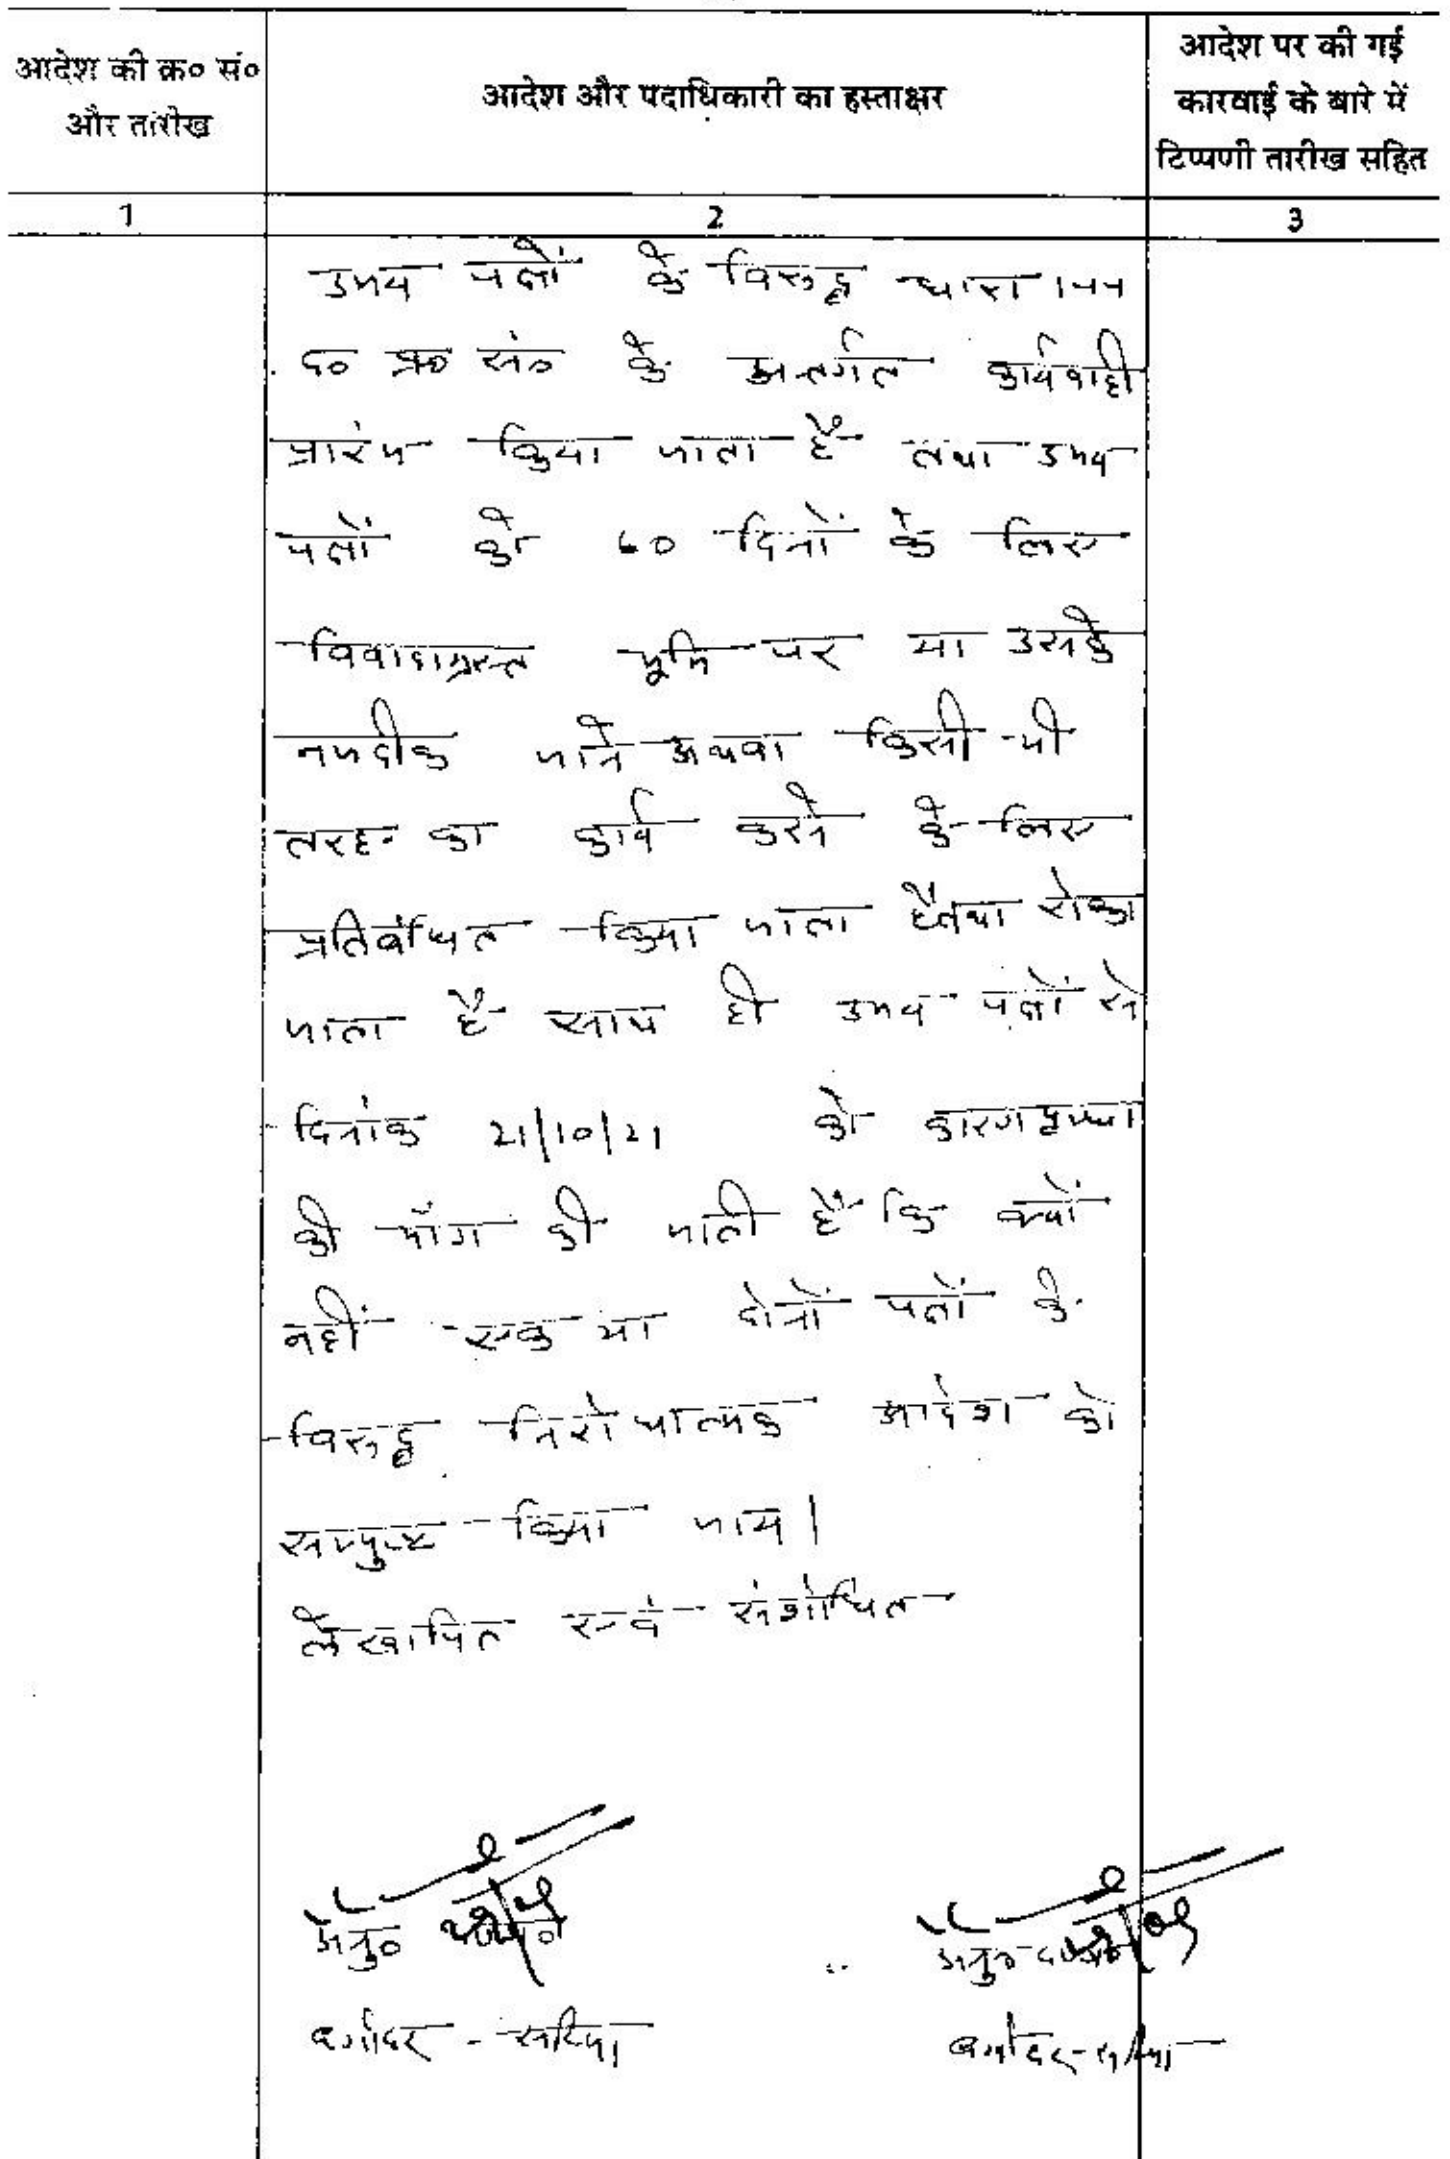 आदेश की क्र० सं०
और तारीख
आदेश और पदाधिकारी का हस्ताक्षर
आदेश पर की गई
कारवाई के बारे में
टिप्पणी तारीख सहित
1
2
3
उभय पक्षों के विरुद्ध धारा 144
द० प्र० सं० के अन्तर्गत कार्यवाही
प्रारंभ किया जाता है तथा उभय
पक्षों को 60 दिनों के लिए
विवादाग्रस्त भूमि पर या उसके
नजदीक जाने अथवा किसी भी
तरह का कार्य करने के लिए
प्रतिबंधित किया जाता है तथा रोका
जाता है साथ ही उभय पक्षों से
दिनांक 21/10/21 को कारणपृच्छा
की माँग की जाती है कि क्यों
नहीं एक या दोनों पक्षों के
विरुद्ध निरोधात्मक आदेश को
सम्पुष्ट किया जाय।
लेखापित एवं संशोधित
अनु०
बगोदर - सरिया
अनु०
बगोदर - सरिया